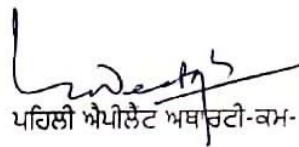 ਪਹਿਲੀ ਐਪੀਲੈਂਟ ਅਥਾਰਟੀ-ਕਮ-